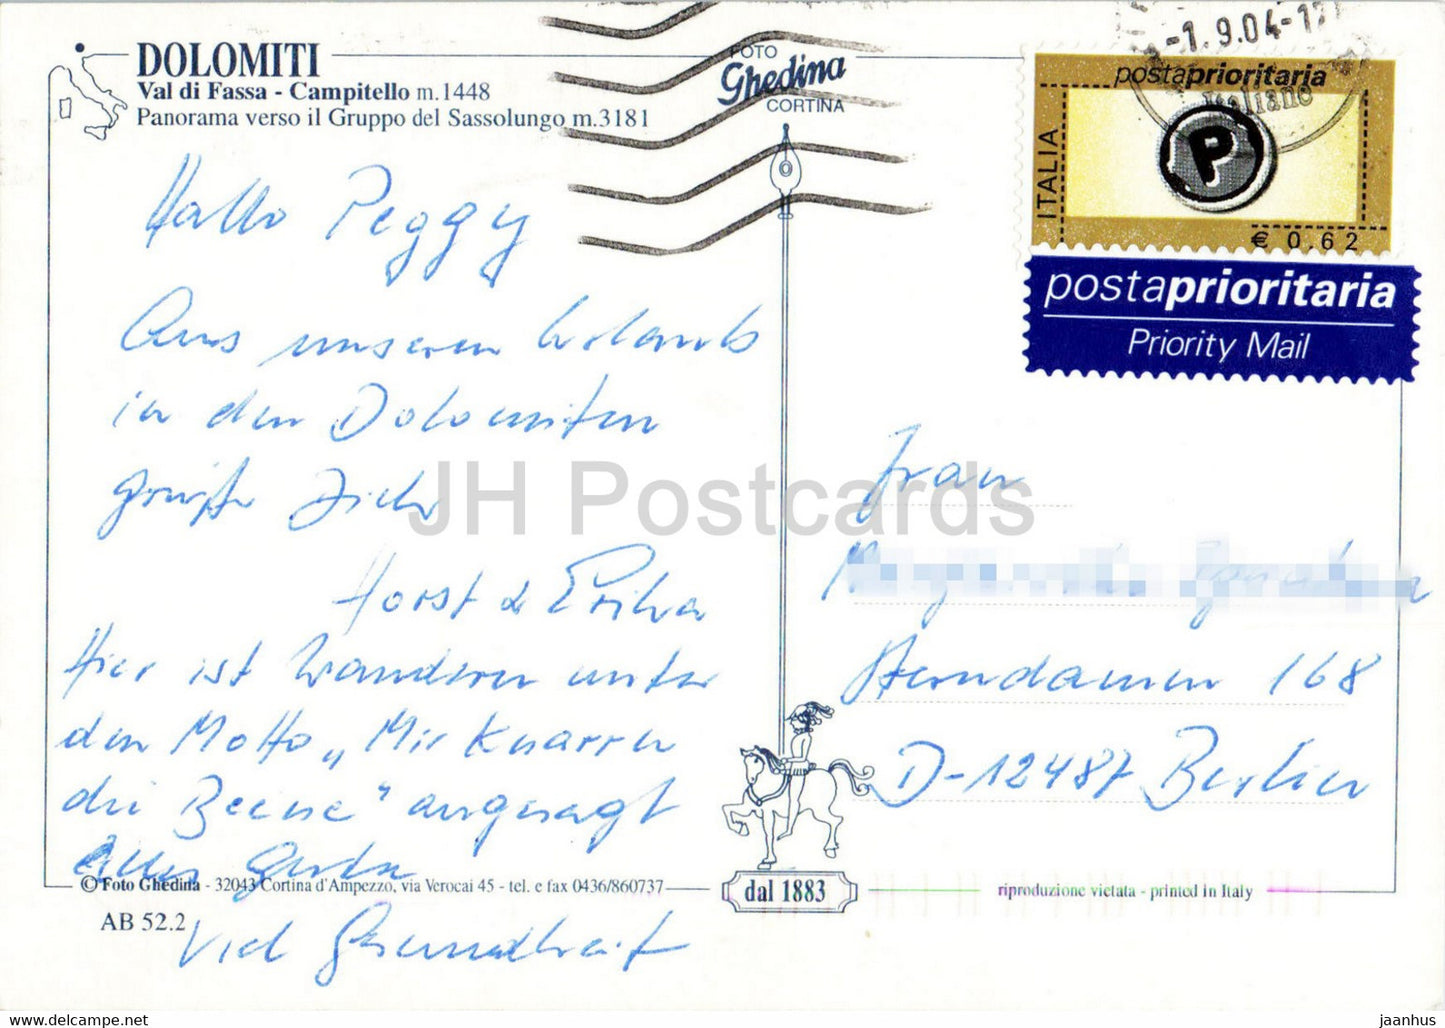 DOLOMITI
Val di Fassa - Campitello m.1448
Panorama verso il Gruppo del Sassolungo m.3181
FOTO
Ghedina
CORTINA
-1.9.04-17
Italiane
postaprioritaria
P
ITALIA
€ 0.62
postaprioritaria
Priority Mail
Hallo Peggy
Aus unseren Urlaub
in den Dolomiten
grüßen Dich
Horst & Erika
Hier ist Wandern unter
den Motto „Mir knarren
die Beene" angesagt
Alles Gute
Viel Gesundheit
Frau
168
D-12487 Berlin
© Foto Ghedina - 32043 Cortina d'Ampezzo, via Verocai 45 - tel. e fax 0436/860737
AB 52.2
dal 1883
riproduzione vietata - printed in Italy
JH Postcards
jaanhus